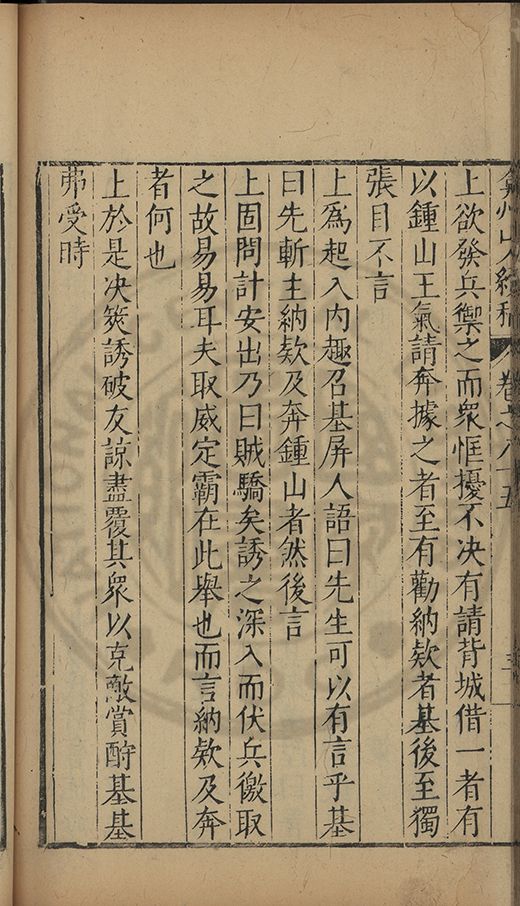 弇州山人續稿 卷之八十五 三
上欲發兵禦之而衆恇擾不决有請背城借一者有
以鍾山王氣請奔據之者至有勸納欵者基後至獨
張目不言
上爲起入内趣召基屏人語曰先生可以有言乎基
曰先斬主納欵及奔鍾山者然後言
上固問計安出乃曰賊驕矣誘之深入而伏兵徼取
之故易易耳夫取威定霸在此舉也而言納欵及奔
者何也
上於是决筴誘破友諒盡覆其衆以克敵賞酧基基
弗受時